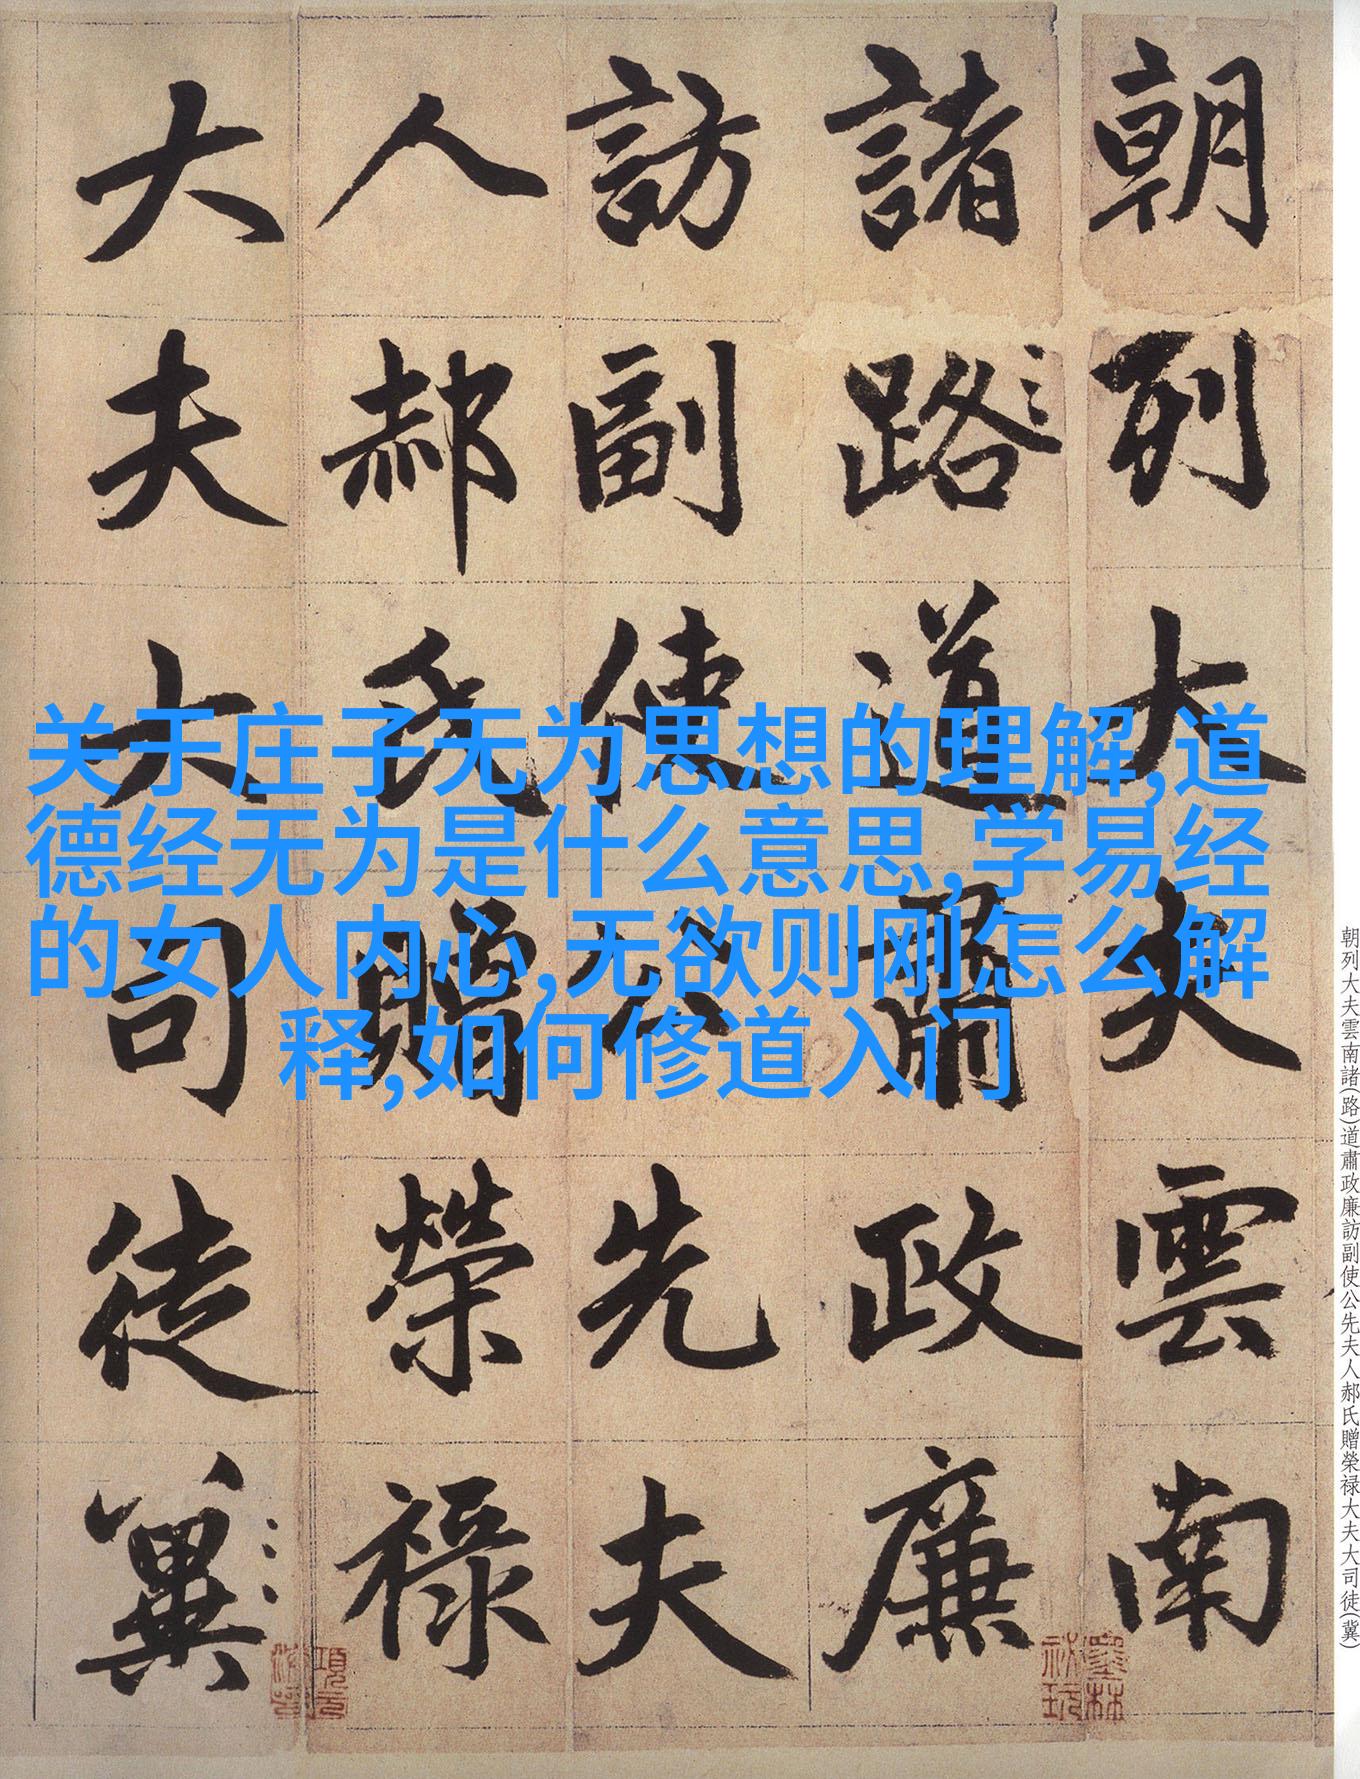 朝列大夫雲南
諸路道肅政廉
訪副使公先夫
人郝氏贈榮祿
大夫大司徒冀
关于庄子无为思想的理解,道
德经无为是什么意思,学易经
的女人内心,无欲则刚怎么解
释,如何修道入门
朝列大夫雲南諸(路)道肅政廉訪副使公先夫人郝氏贈榮禄大夫大司徒(冀)
墨林
祕玩
項元
汴印